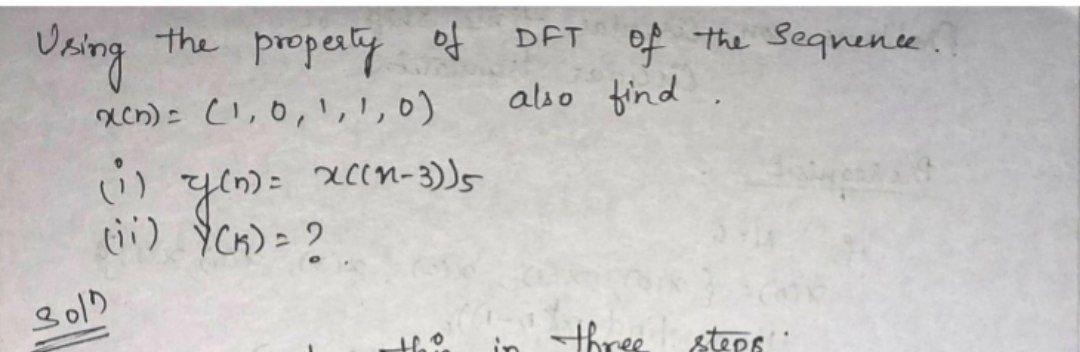 Using the property of DFT of the Sequence.
x(n) = (1, 0, 1, 1, 0) also find.
(i) y(n) = x((n-3))5
(ii) Y(K) = ?
Solⁿ
this in three steps.